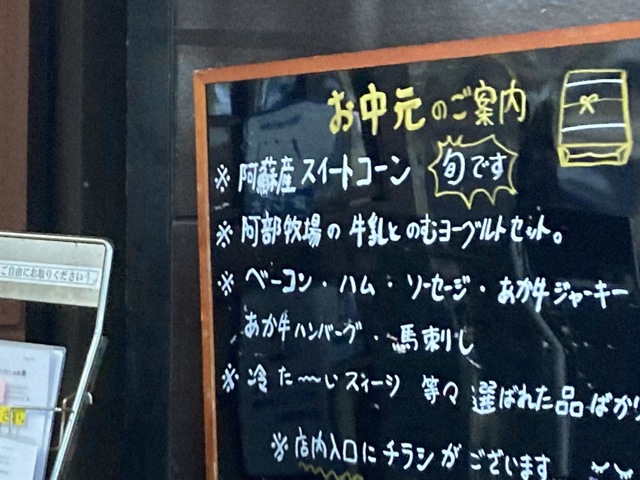 お中元のご案内
※阿蘇産スイートコーン 旬です
※阿部牧場の牛乳とのむヨーグルトセット。
※ベーコン・ハム・ソーセージ・あか牛ジャーキー
あか牛ハンバーグ・馬刺し
※冷た〜いスイーツ 等々 選ばれた品ばかり
※店内入口にチラシがございます
ご自由にお取りください